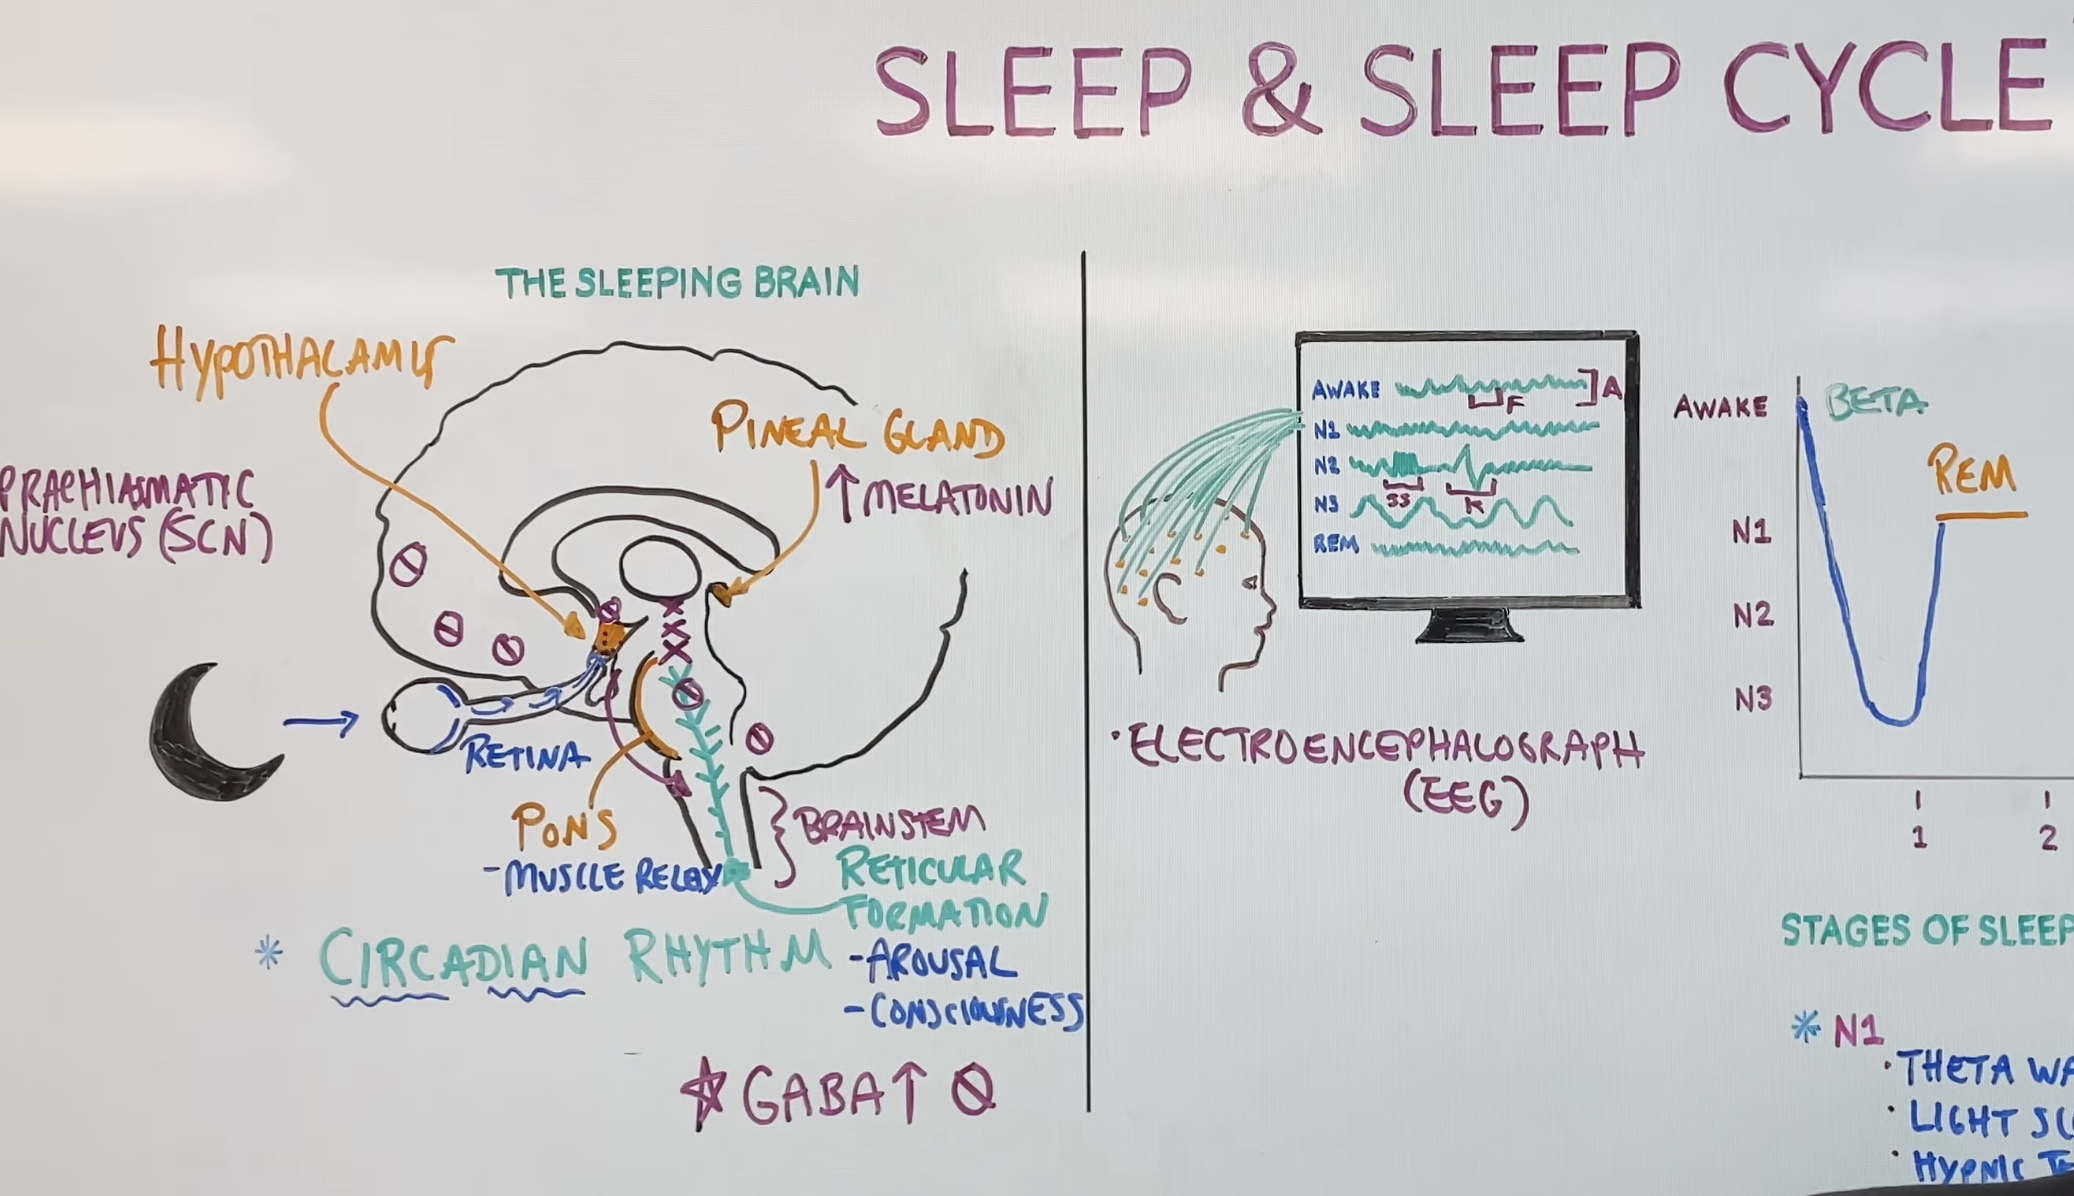 SLEEP & SLEEP CYCLE
THE SLEEPING BRAIN
HYPOTHALAMUS
PRACHIASMATIC
NUCLEUS (SCN)
PINEAL GLAND
↑ MELATONIN
RETINA
PONS
- MUSCLE RELAY
BRAINSTEM
RETICULAR
FORMATION
- AROUSAL
- CONSCIOUSNESS
* CIRCADIAN RHYTHM
☆ GABA ↑
AWAKE
F
A
N1
N2
SS
K
N3
REM
· ELECTROENCEPHALOGRAPH
(EEG)
AWAKE
BETA
REM
N1
N2
N3
1
2
STAGES OF SLEEP
* N1
· THETA WA
· LIGHT SL
· HYPNIC